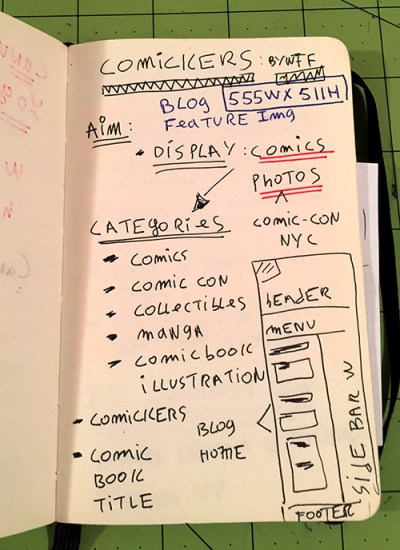 COMICKERS: BY WFF
BLOG 555W X 511H
FEATURE Img
AIM:
• DISPLAY: COMICS
PHOTOS
COMIC-CON
NYC
CATEGORIES
- COMICS
- COMIC CON
- COLLECTIBLES
- MANGA
- COMIC BOOK
ILLUSTRATION
- COMICKERS
- COMIC
BOOK
TITLE
BLOG
HOME
HEADER
MENU
SIDE BAR W
FOOTER